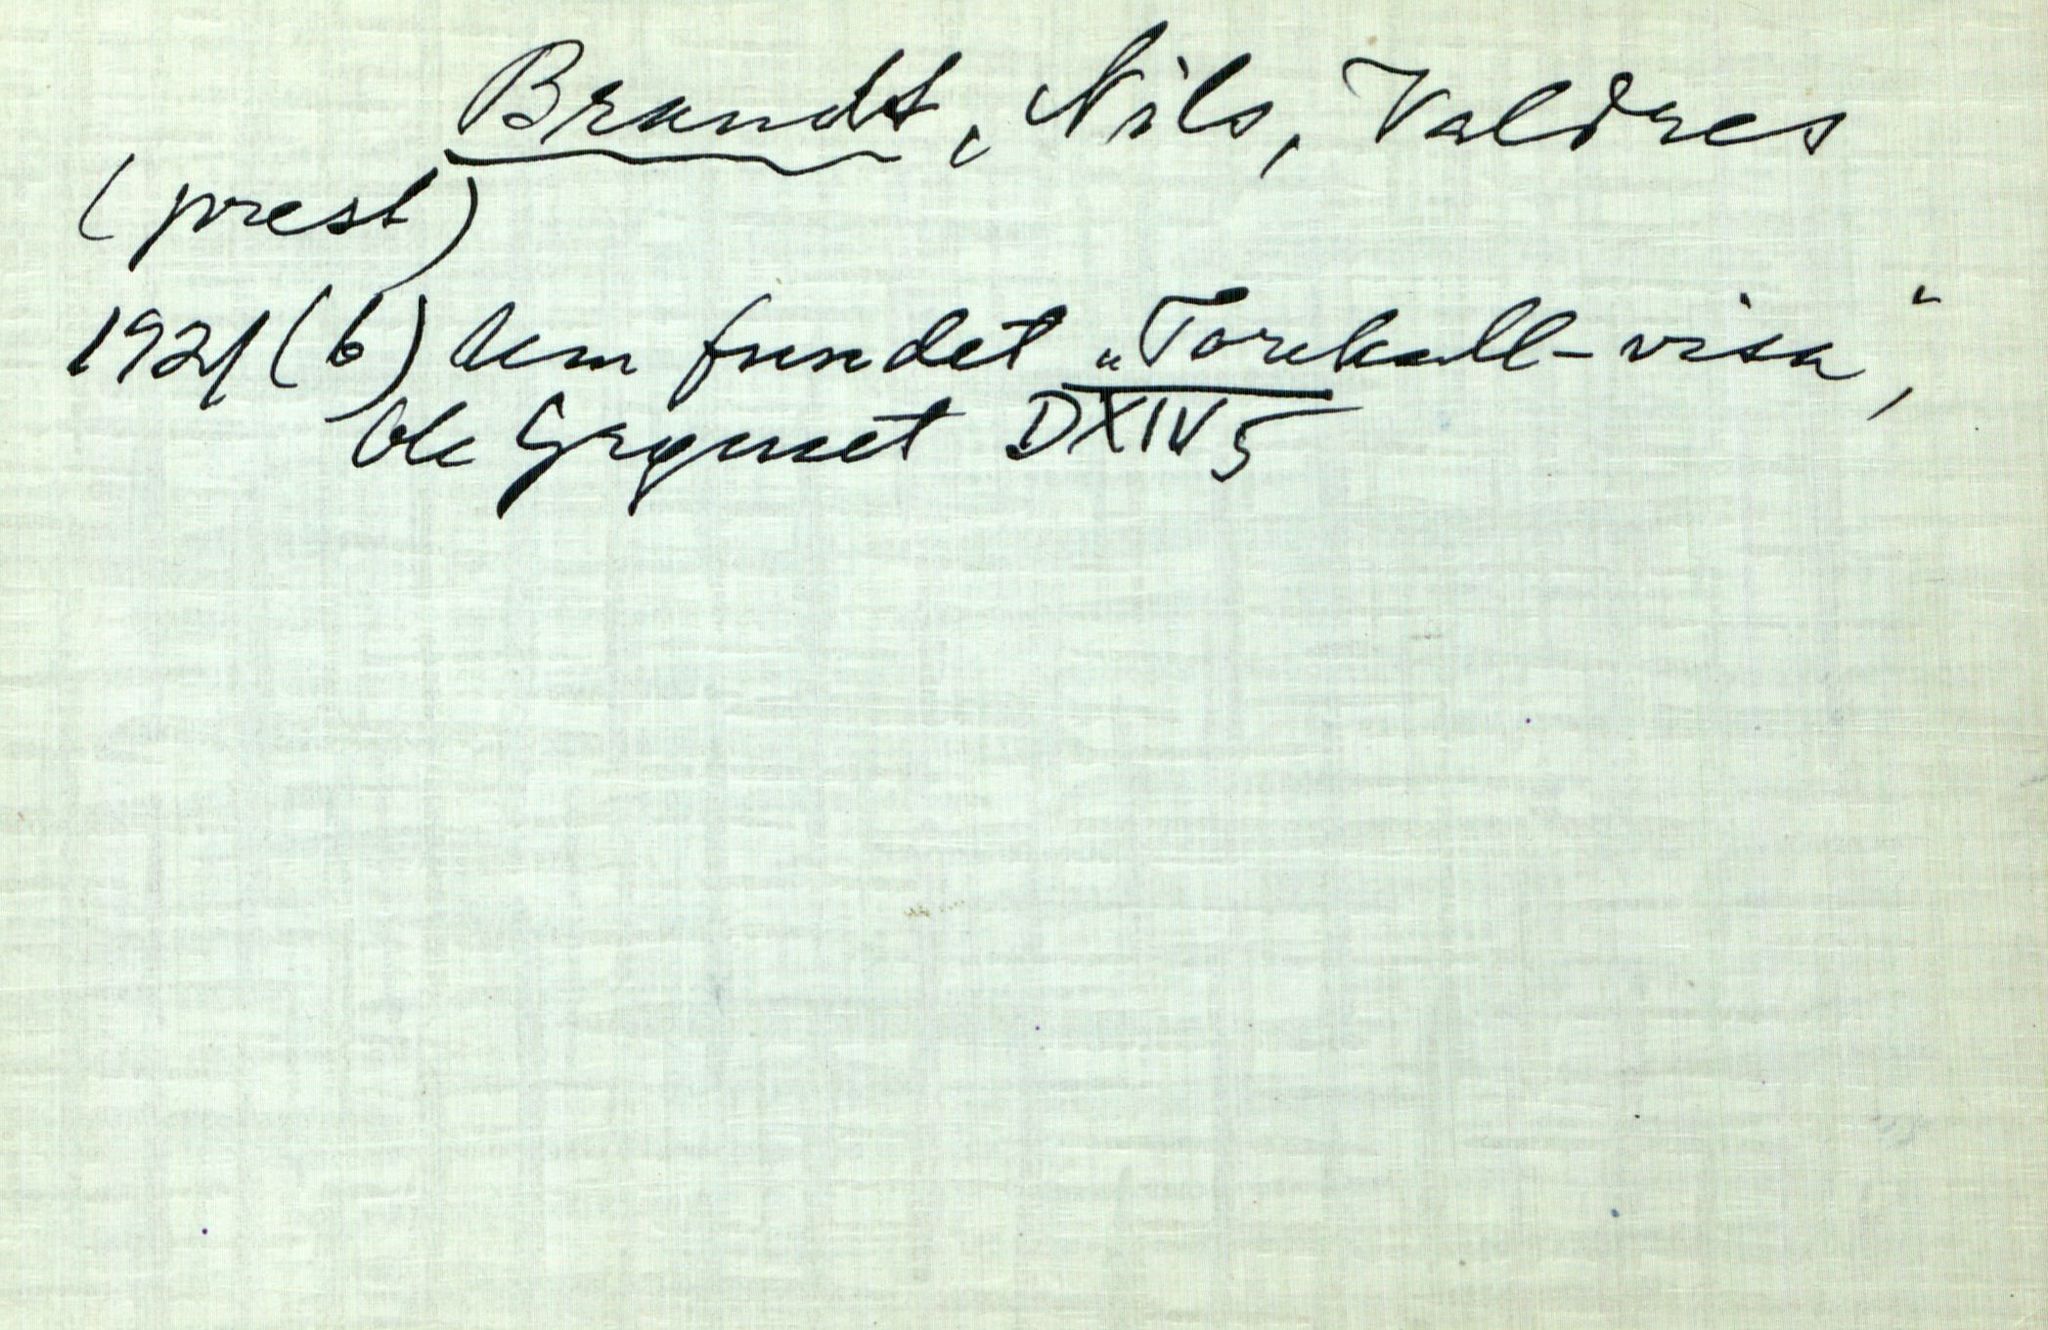 Brandt, Nils, Valdres
(prest)
1921 (6) fundet „Torekall-visa",
Ole DXIV 5